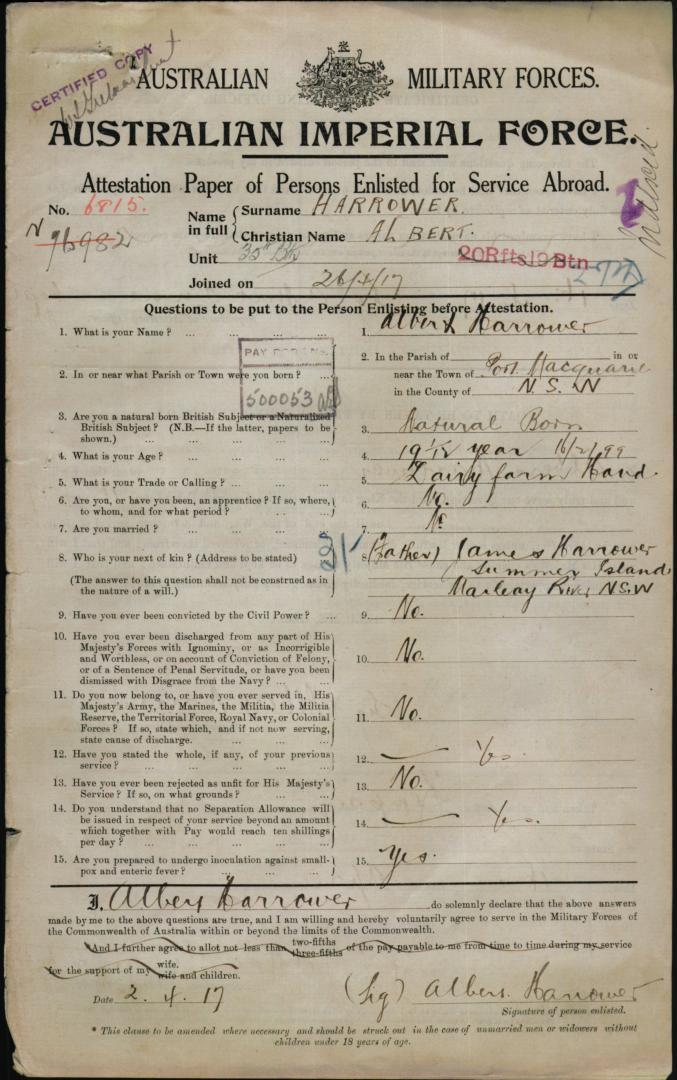 CERTIFIED COPY
AUSTRALIAN MILITARY FORCES.
AUSTRALIAN IMPERIAL FORCE.
Attestation Paper of Persons Enlisted for Service Abroad.
No. 6815.
N 76982
Name in full
Surname HARROWER.
Christian Name ALBERT.
Unit 35th Btn
20Rfts19Btn
Joined on 26/4/17
Questions to be put to the Person Enlisting before Attestation.
1. What is your Name? ... ... ... ...
1. Albert Harrower
PAY
500053
2. In or near what Parish or Town were you born? ...
2. In the Parish of in or
near the Town of Port Macquarie
in the County of N.S.W
3. Are you a natural born British Subject or a Naturalized
British Subject? (N.B.—If the latter, papers to be
shown.) ... ... ... ... ...
3. Natural Born
4. What is your Age? ... ... ... ...
4. 19 1/12 year 16/2/99
5. What is your Trade or Calling? ... ... ...
5. Dairy farm Hand.
6. Are you, or have you been, an apprentice? If so, where,
to whom, and for what period? ... ...
6. No.
7. Are you married? ... ... ... ...
7. No
8. Who is your next of kin? (Address to be stated)
(The answer to this question shall not be construed as in
the nature of a will.)
8. (Father) James Harrower
Summer Island
Macleay River N.S.W
9. Have you ever been convicted by the Civil Power? ...
9. No.
10. Have you ever been discharged from any part of His
Majesty's Forces with Ignominy, or as Incorrigible
and Worthless, or on account of Conviction of Felony,
or of a Sentence of Penal Servitude, or have you been
dismissed with Disgrace from the Navy? ... ...
10. No.
11. Do you now belong to, or have you ever served in, His
Majesty's Army, the Marines, the Militia, the Militia
Reserve, the Territorial Force, Royal Navy, or Colonial
Forces? If so, state which, and if not now serving,
state cause of discharge. ... ... ...
11. No.
12. Have you stated the whole, if any, of your previous
service? ... ... ... ... ...
12. Yes.
13. Have you ever been rejected as unfit for His Majesty's
Service? If so, on what grounds? ... ...
13. No.
14. Do you understand that no Separation Allowance will
be issued in respect of your service beyond an amount
which together with Pay would reach ten shillings
per day? ... ... ... ... ...
14. Yes.
15. Are you prepared to undergo inoculation against small-
pox and enteric fever? ... ... ...
15. Yes.
I, Albert Harrower do solemnly declare that the above answers
made by me to the above questions are true, and I am willing and hereby voluntarily agree to serve in the Military Forces of
the Commonwealth of Australia within or beyond the limits of the Commonwealth.
*And I further agree to allot not less than two-fifths three-fifths of the pay payable to me from time to time during my service
for the support of my wife. wife and children.
Date 2.4.17
(Sig) Albert Harrower
Signature of person enlisted.
* This clause to be amended where necessary and should be struck out in the case of unmarried men or widowers without
children under 18 years of age.